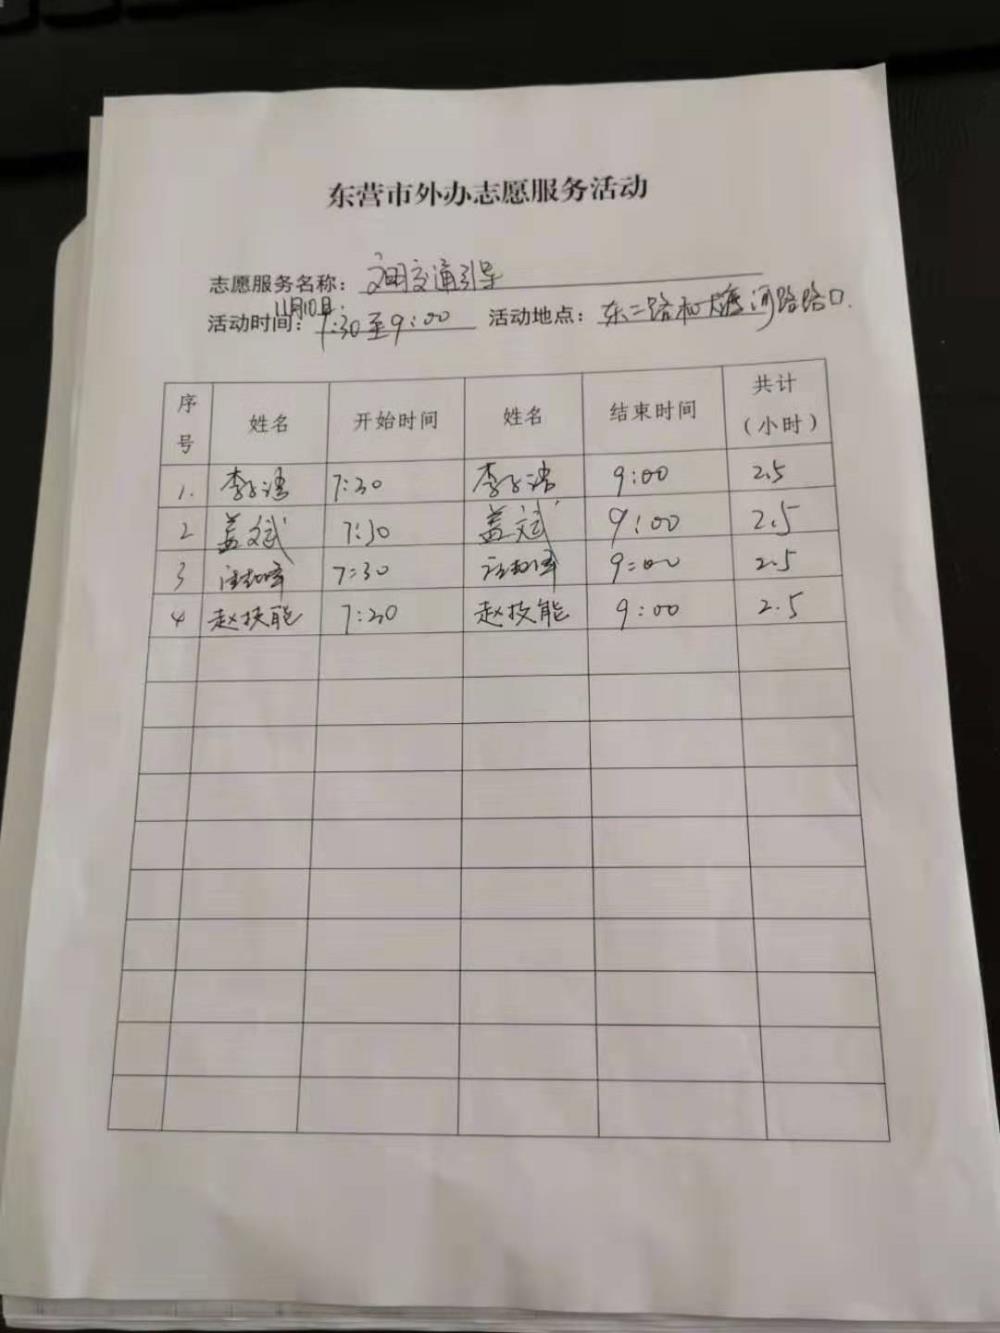 东营市外办志愿服务活动
志愿服务名称：文明交通引导
11月10日
活动时间：7:30至9:00 活动地点：东二路和大渡河路路口.
序号 姓名 开始时间 姓名 结束时间 共计（小时）
1. 李子涛 7:30 李子涛 9:00 2.5
2 盖文斌 7:30 盖文斌 9:00 2.5
3 7:30 9:00 2.5
4 赵技能 7:30 赵技能 9:00 2.5